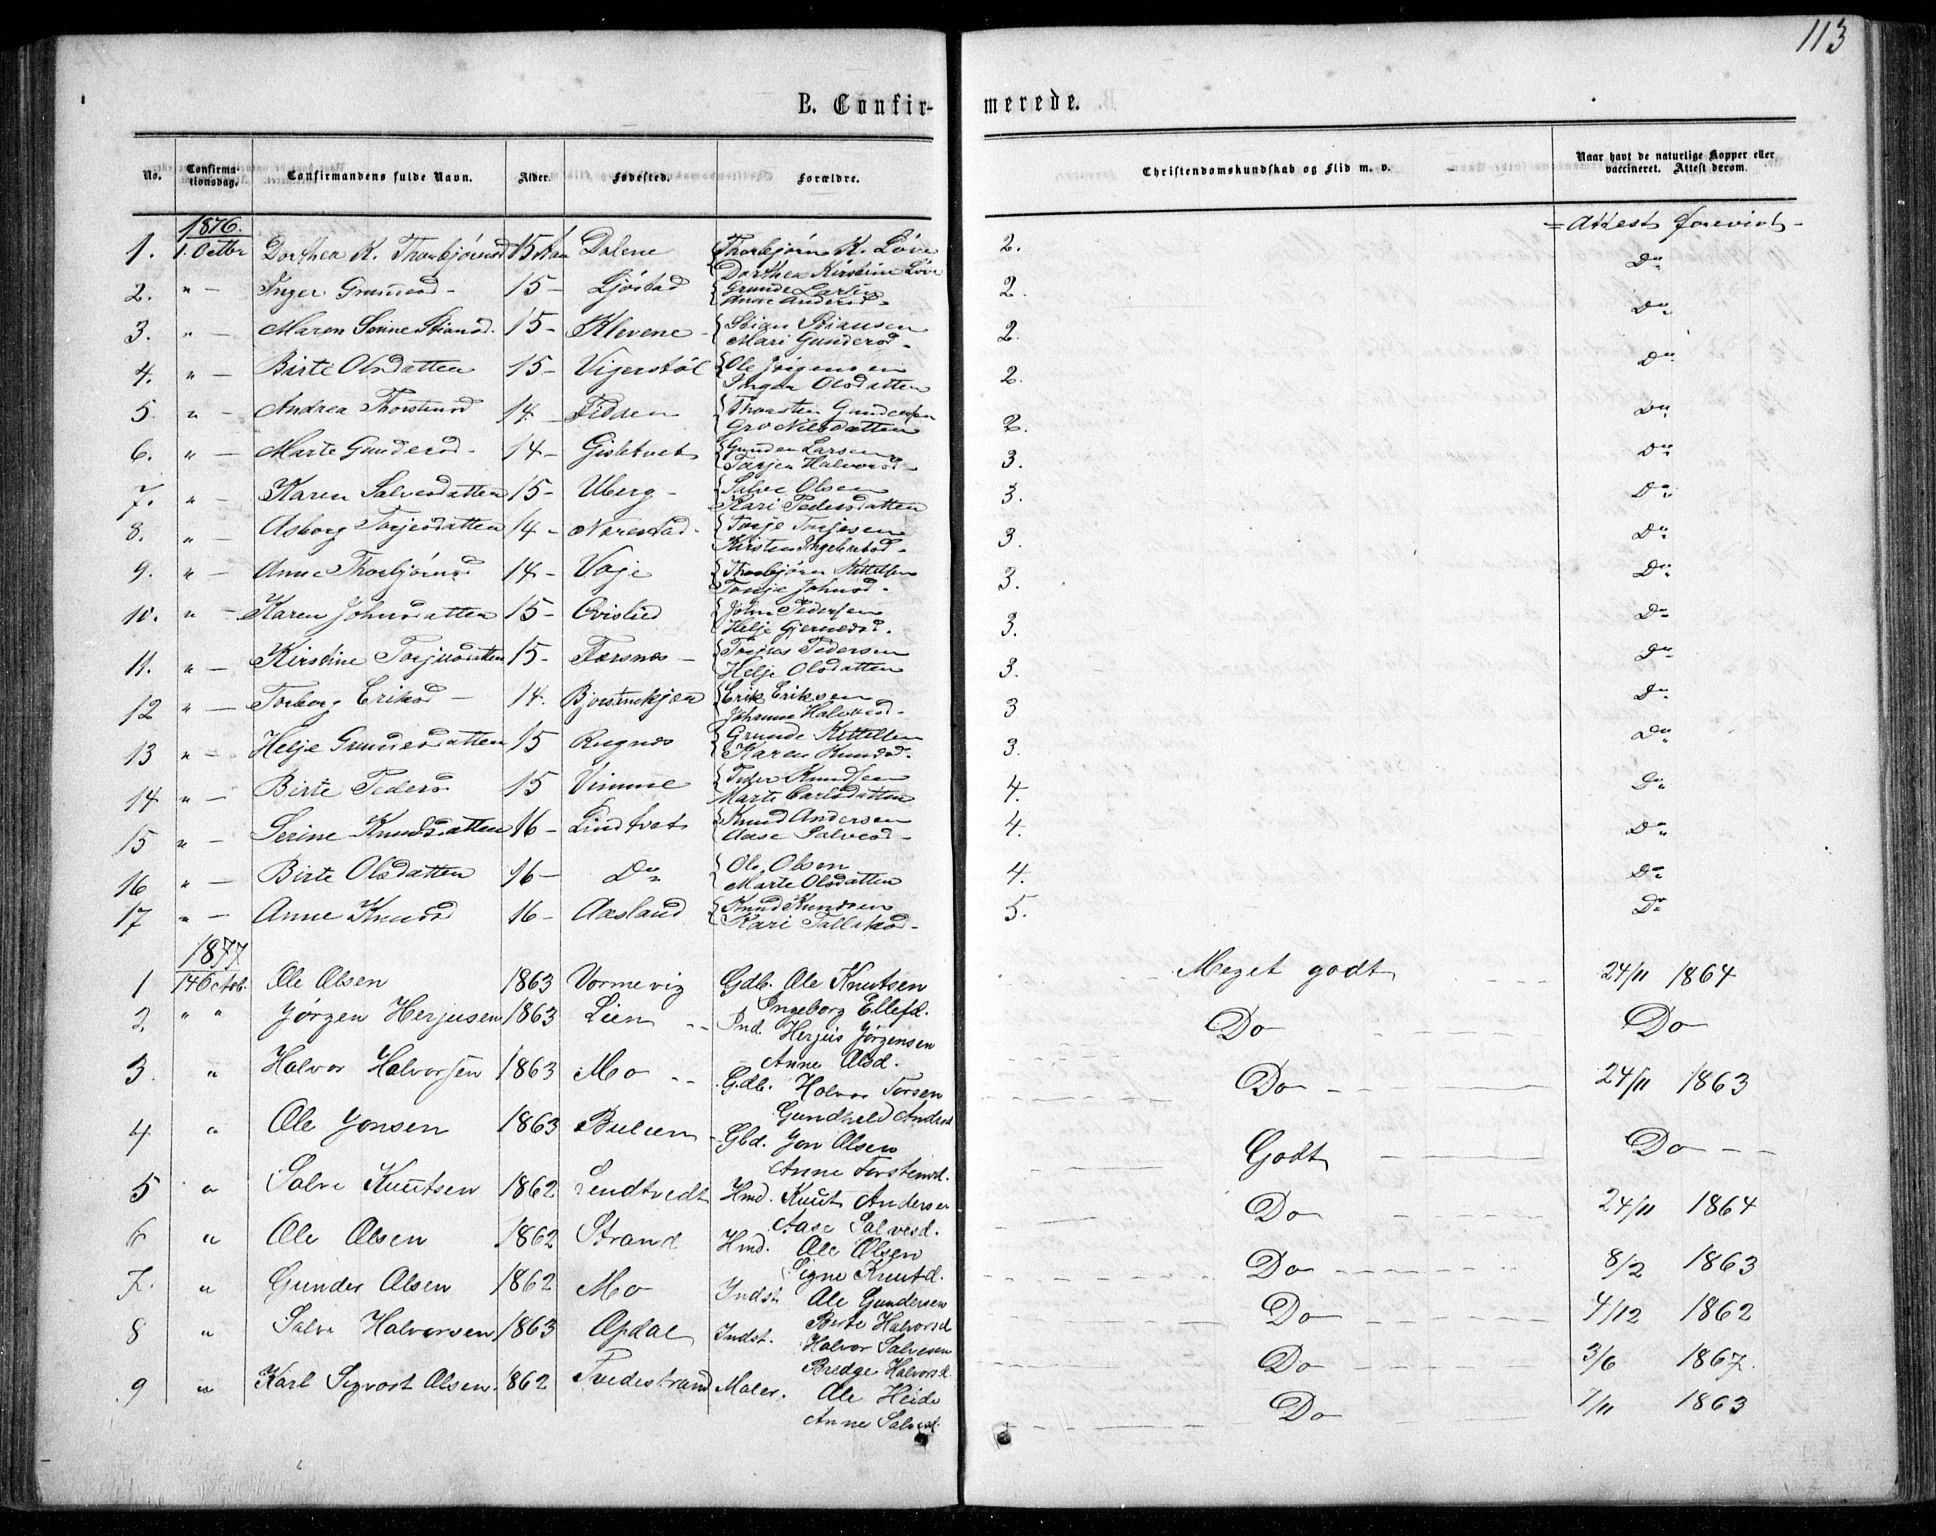 113
B. Confirmerede.
No. Confirmationsdag. Confirmandens fulde Navn. Alder. Fødested. Forældre. Christendomskundskab og Flid m. v. Naar havt de naturlige Kopper eller vaccineret. Attest derom.
1876. = Attest forevist -
1. 1. Octbr Dorthea K. Thorbjørnsd 15 Aar Dalene Thorbjørn K. Løve 2. Do
Dorthea Kirstine Løve
2. " - Inger Grundesd - 15 - Ljøstad Grunde Larsen 2. Do
Anne Andersd -
3. " - Maren Serine Stiansd. 15 - Klevene - Stian Stiansen 2. Do
Mari Gundersd -
4. " - Birte Olsdatten 15 - Vigerstøl Ole Jørgensen 2. Do
Inger Olsdatten
5. " - Andrea Thorstensd 14 - Fidden Thorsten Gundersen 2. Do
Gro Nilsdatten
6. " - Marte Gundersd - 14 - Gisletvet Gunder Larsen 3. Do
Torjer Halvorsd -
7. " - Karen Salvesdatten 15 - Uberg - Salve Olsen 3. Do
Kari Pedersdatten
8. " - Asborg Torjesdatten 14 - Narestad - Torje Torjesen 3. Do
Kirsten Ingebretsd -
9. " - Anne Thorbjørnsd 14 - Voje Thorbjørn Kittelsen 3. Do
Tonje Johnsd -
10. " - Karen Johnsdatten 15 - Qvislied John Pedersen 3. Do
Helje Gjermosd.
11. " - Kirstine Torjusdatten 15 - Færsnes - Torjus Pedersen 3. Do
Helje Olsdatten
12 " - Torborg Eriksd - 14. Bjorstuekjær Erik Eriksen 3 Do
Johanne Halvorsd -
13 " - Helje Grundesdatten 15 Rugnes Grunde Kittelsen 3. Do
Karen Knudsd -
14 " - Birte Pedersd 15 Vimme Peder Knudsen 4. Do
Marte Carlsdatten
15 " - Serine Knudsdatten 16 - Lindtvet Knud Andersen 4. Do
Aase Salvesd -
16 " - Birte Olsdatten 16 - Do Ole Olsen 4. Do
Marte Olsdatten
17 " - Anne Knudsd 16 - Aasland Knud Knudsen 5. Do
Kari Tallaksd -
1877.
1 14 Octob. Ole Olsen 1863 Vormevig Gdb. Ole Knutsen Meget godt 24/11 1864
Ingeborg Ellefd.
2. " " Jørgen Herjusen 1863 Lien Ind. Herjus Jørgensen Do Do
Anne Olsd.
3. " Halvor Halvorsen 1863 Mo Gdb. Halvor Torsen Do 24/11 1863
Gundheld Andersd
4 " Ole Jonsen 1863 Buleen Gbd. Jon Olsen Godt Do
Anne Torstensd.
5 " Salve Knutsen 1862 Lendtvedt Hmd. Knut Andersen Do 24/11 1864
Aase Salvesd.
6 " Ole Olsen 1862 Strand Hmd. Ole Olsen Do 8/2 1863
Signe Knutd.
7. " Gunder Olsen 1862 Mo Indst Ole Gundersen Do 4/12 1862
Berte Halvorsd
8 " Salve Halvorsen 1863 Opdal Indst. Halvor Salvesen Do 3/6 1867.
Bredge Halvorsd.
9 " Karl Sigvart Olsen 1862 Tvedestrand Maler. Ole Heide Do 7/11 1863
Anne Salvesd.